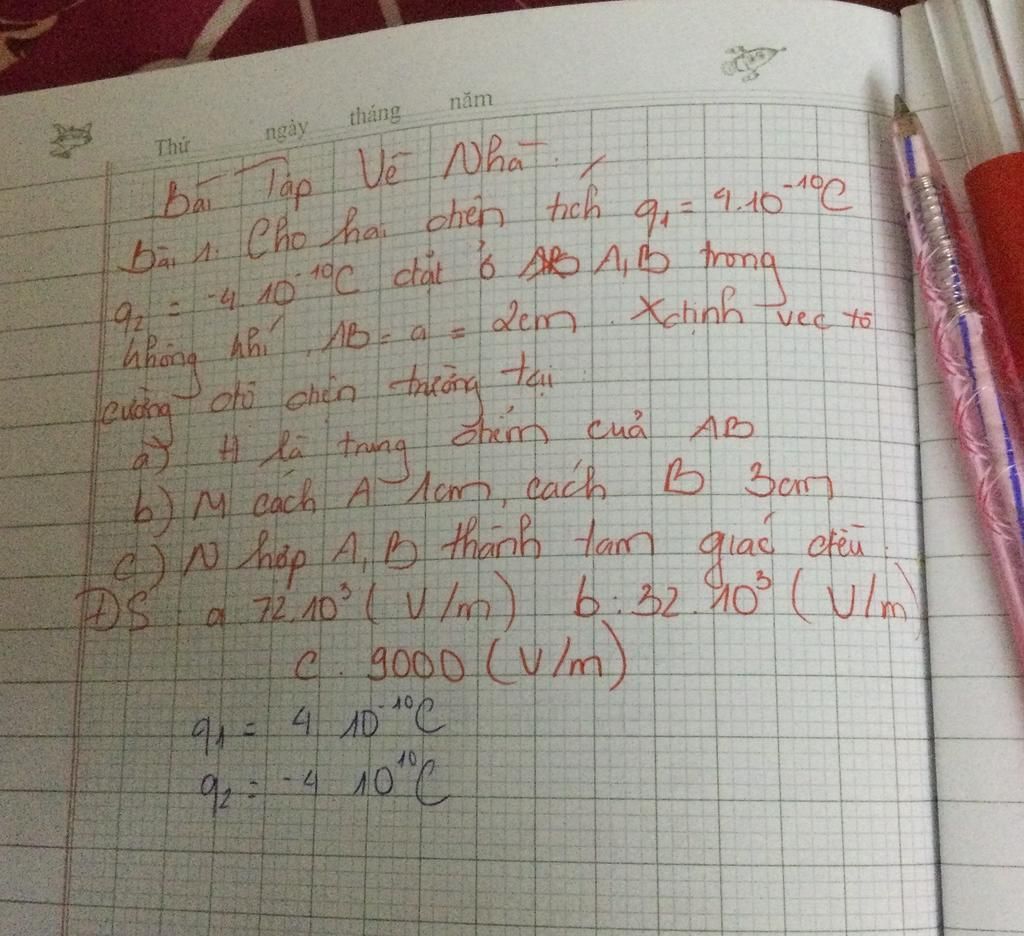 Thứ ngày tháng năm
Bài Tập Về Nhà
Bài 1. Cho hai điện tích q₁ = 4.10⁻¹⁰C
q₂ = -4 10⁻¹⁰C đặt ở A,B trong
không khí, AB = a = 2cm. Xđịnh vec tơ
cường độ điện trường tại
a) H là trung điểm của AB
b) M cách A 1cm, cách B 3cm
c) N hợp A, B thành tam giác đều.
ĐS a 72.10³ (V/m) b: 32.10³ (V/m
c. 9000 (V/m)
q₁ = 4 10⁻¹⁰C
q₂ = -4 10¹⁰C